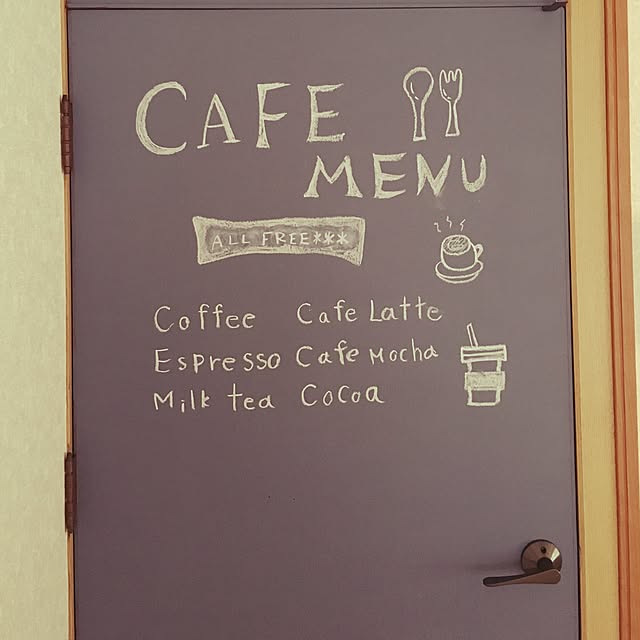 CAFE
MENU
ALL FREE***
Coffee Cafe Latte
Espresso Cafe Mocha
Milk tea Cocoa